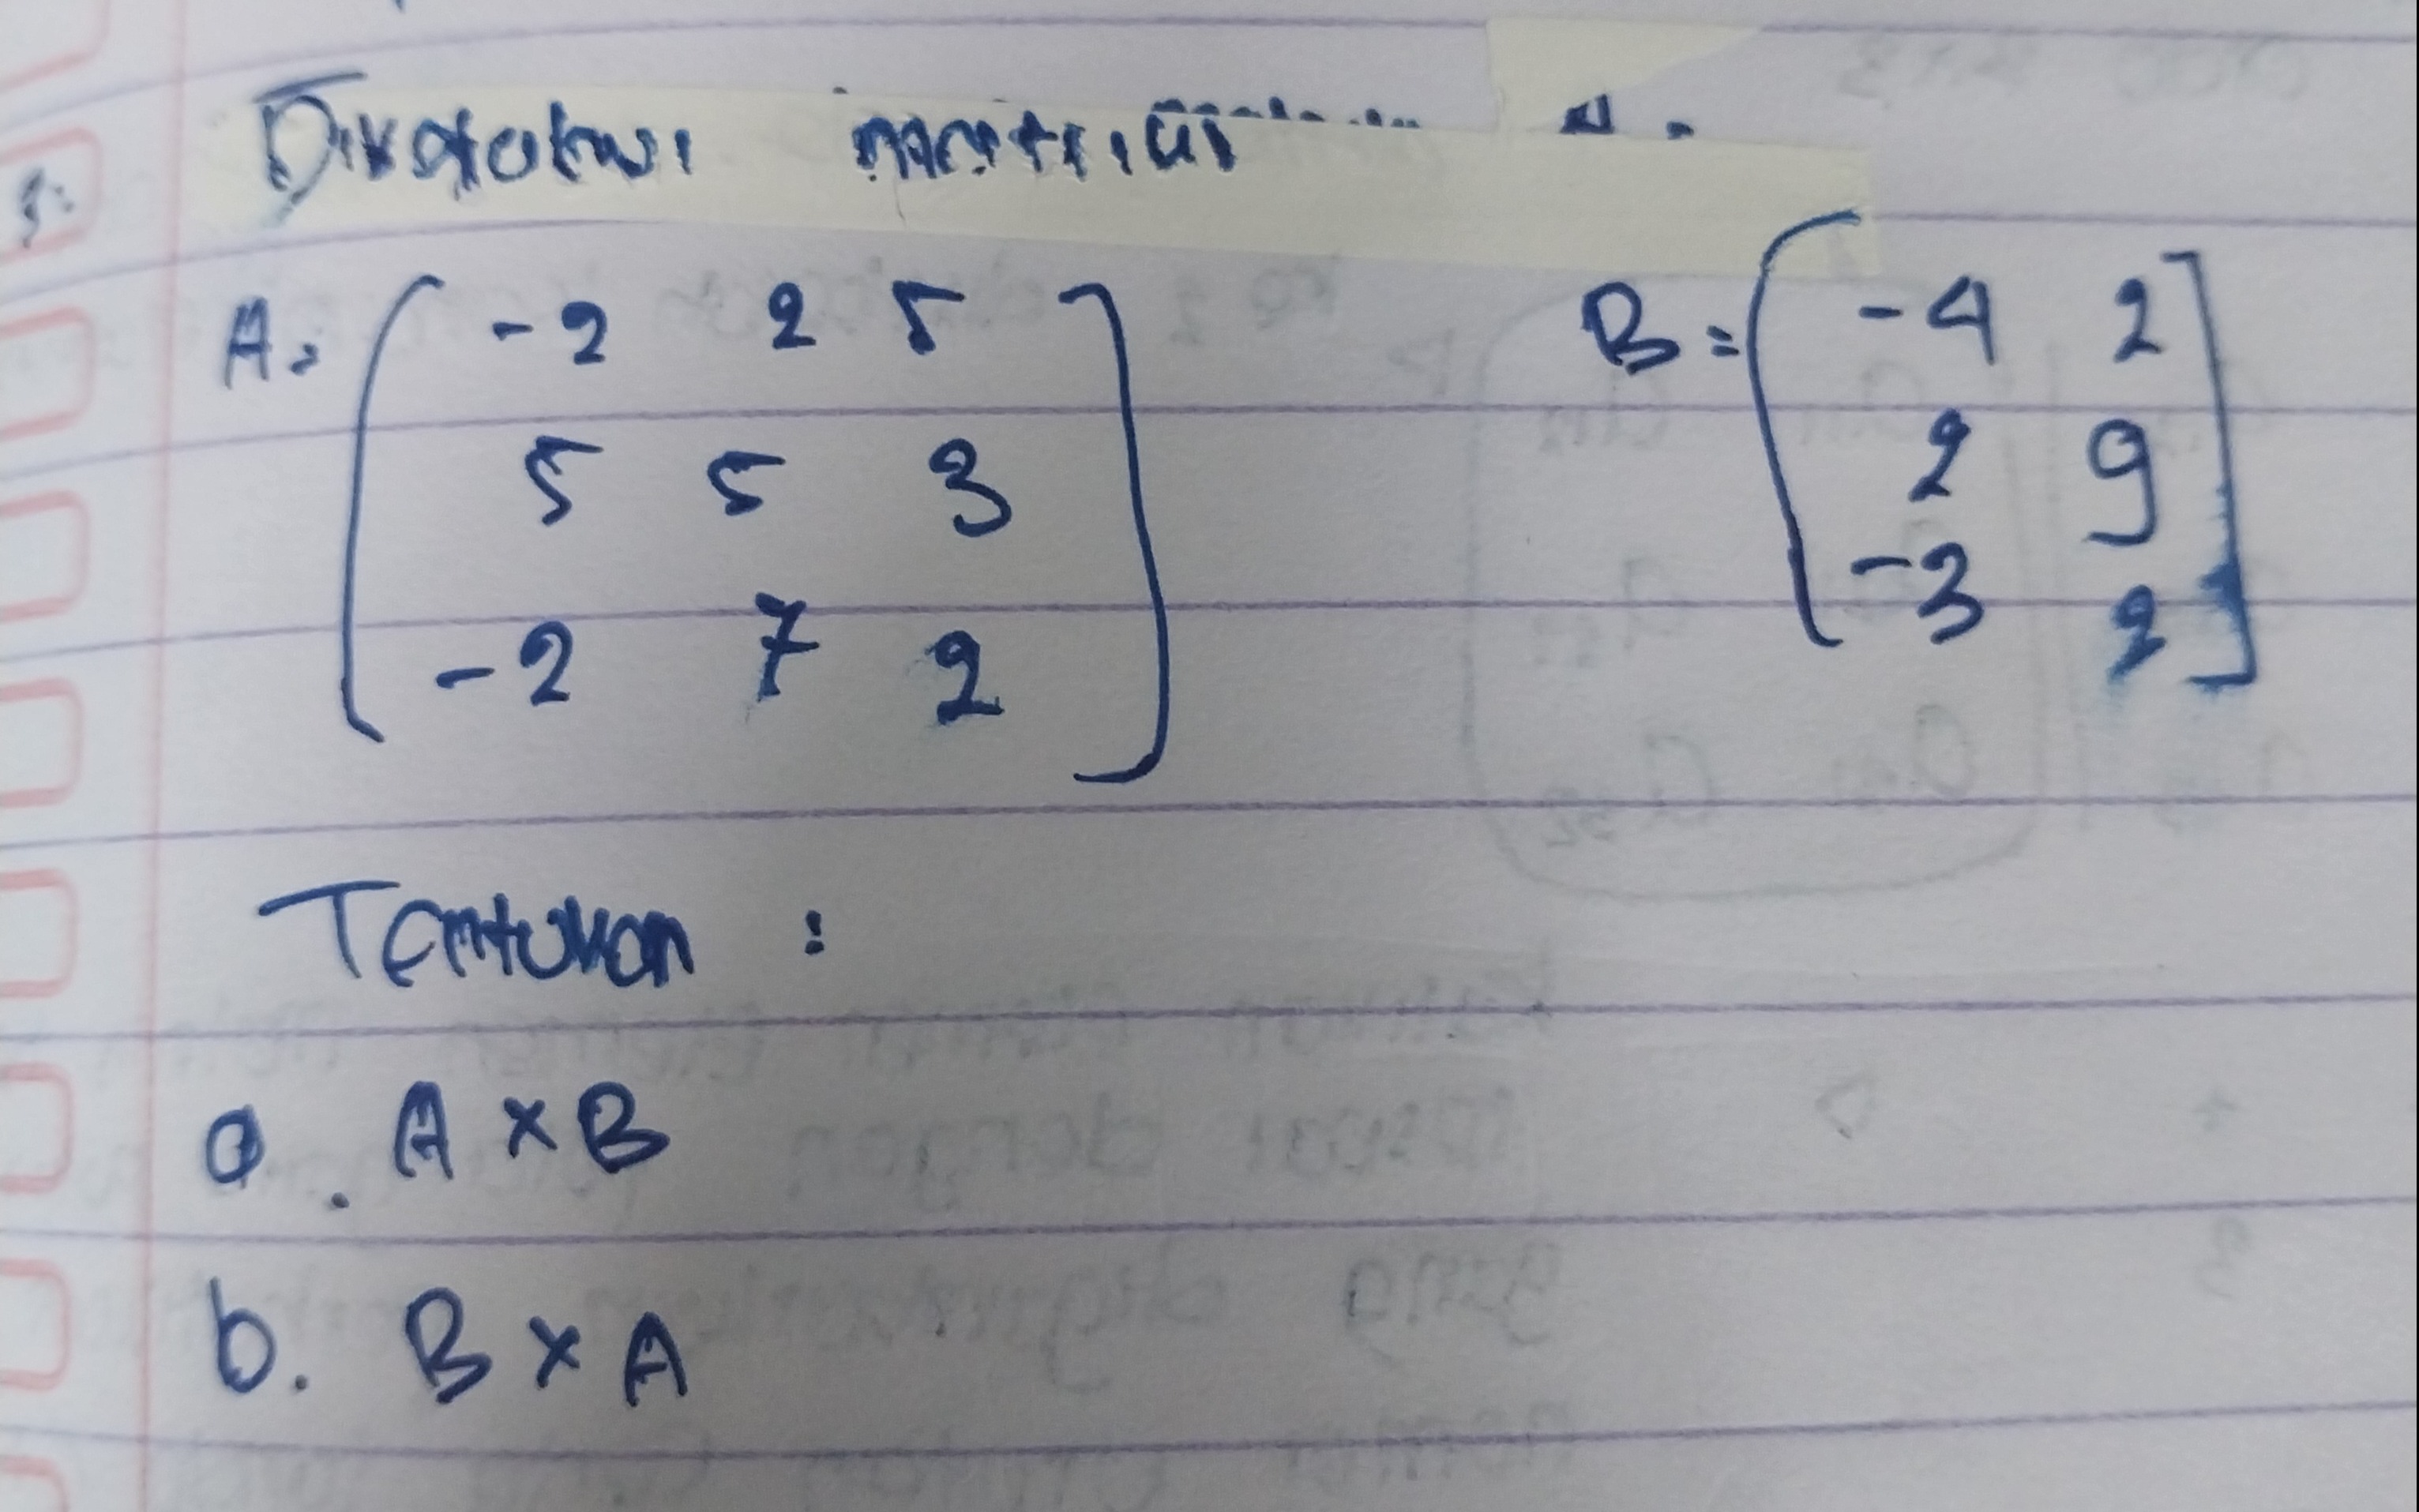 Diketahui matriks
A = [ -2 2 5 ] B = [ -4 2 ]
5 5 3 2 9
-2 7 2 -3 2
Tentukan :
a. A × B
b. B × A